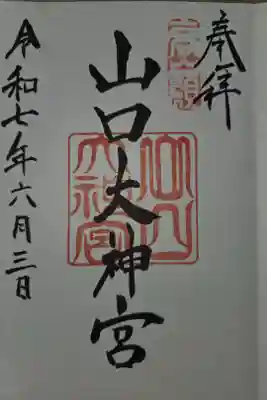 奉拝
山口大神宮
令和七年六月三日